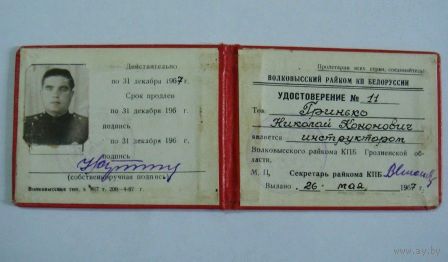 Действительно
по 31 декабря 1967 г.
Срок продлен
по 31 декабря 196 г.
подпись
по 31 декабря 196 г.
подпись
(собственноручная подпись)
Волковысская тип. з. 867 т. 200—4-67 г.
Пролетарии всех стран, соединяйтесь!
ВОЛКОВЫССКИЙ РАЙКОМ КП БЕЛОРУССИИ
УДОСТОВЕРЕНИЕ № 11
Тов. Гринько
Николай Кононович
является инструктором
Волковысского райкома КПБ Гродненской
области.
М. П. Секретарь райкома КПБ
Выдано „26„ мая 1967 г.
www.ay.by